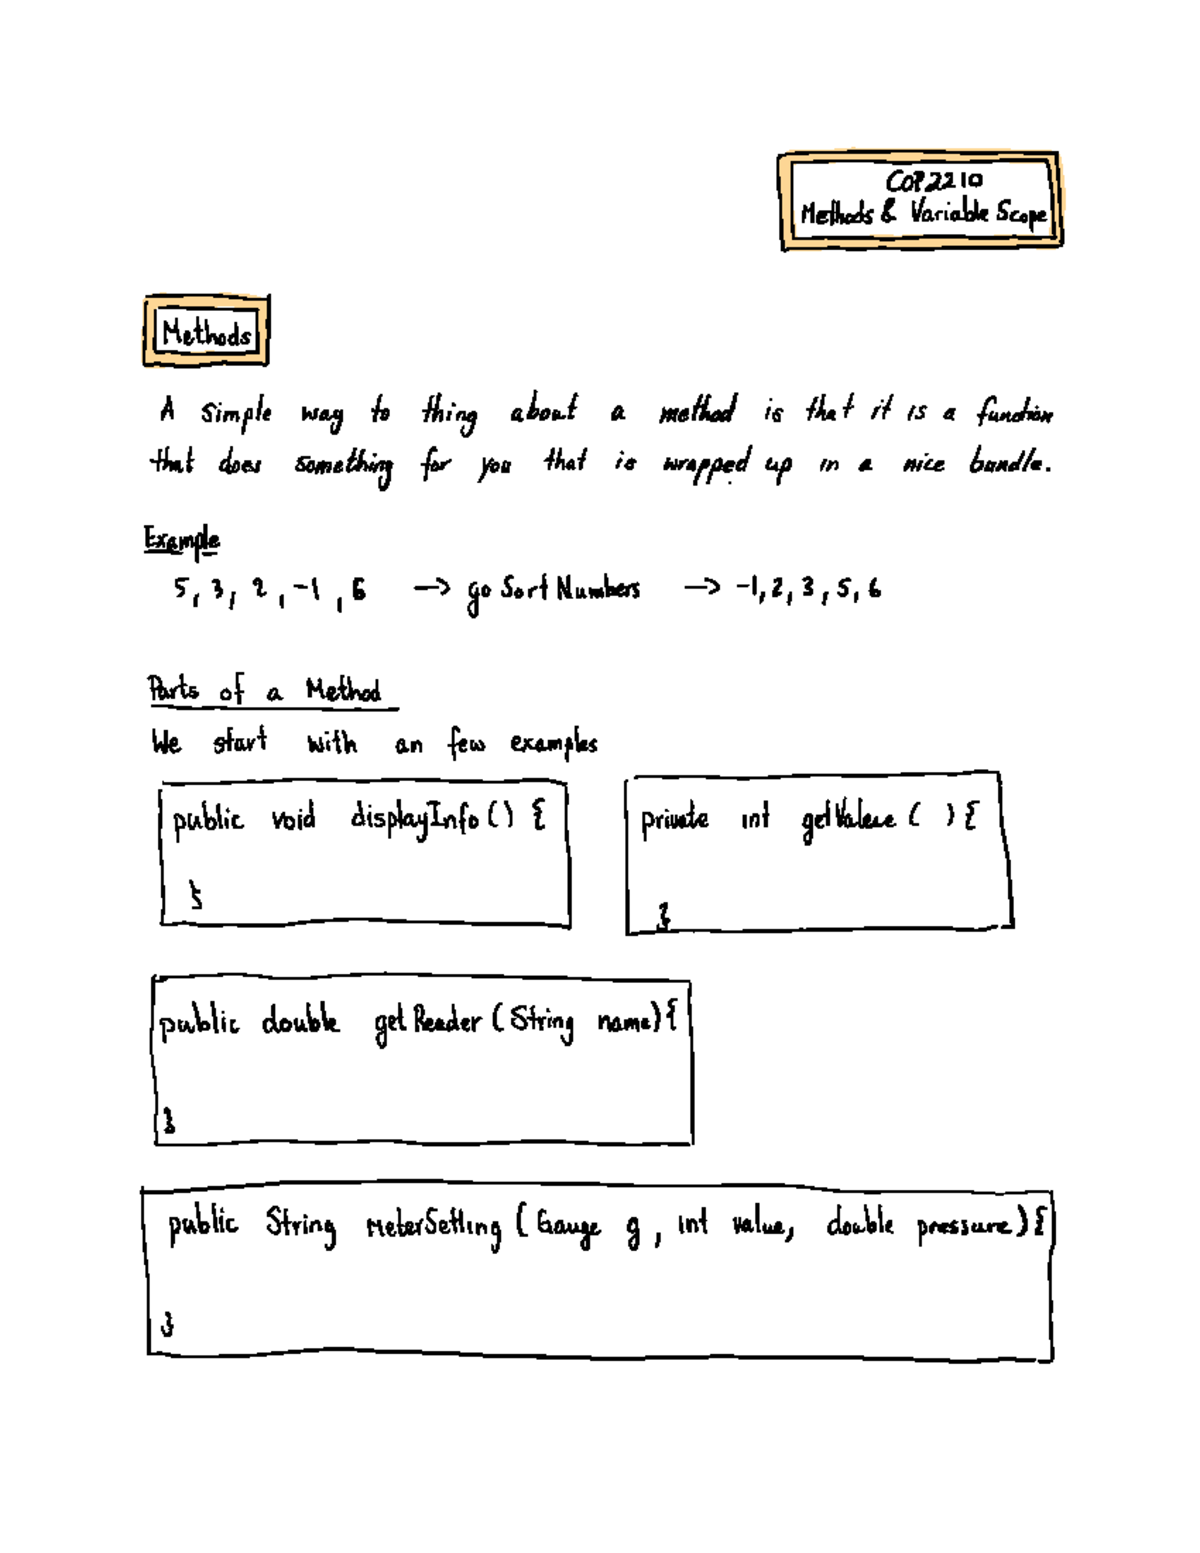 COP2210
Methods & Variable Scope
Methods
A simple way to thing about a method is that it is a function
that does something for you that is wrapped up in a nice bundle.
Example
5, 3, 2, -1, 6 -> go Sort Numbers -> -1, 2, 3, 5, 6
Parts of a Method
We start with an few examples
public void displayInfo () {
}
private int getValue ( ) {
}
public double getReader (String name) {
}
public String meterSetting (Gauge g, int value, double pressure) {
}